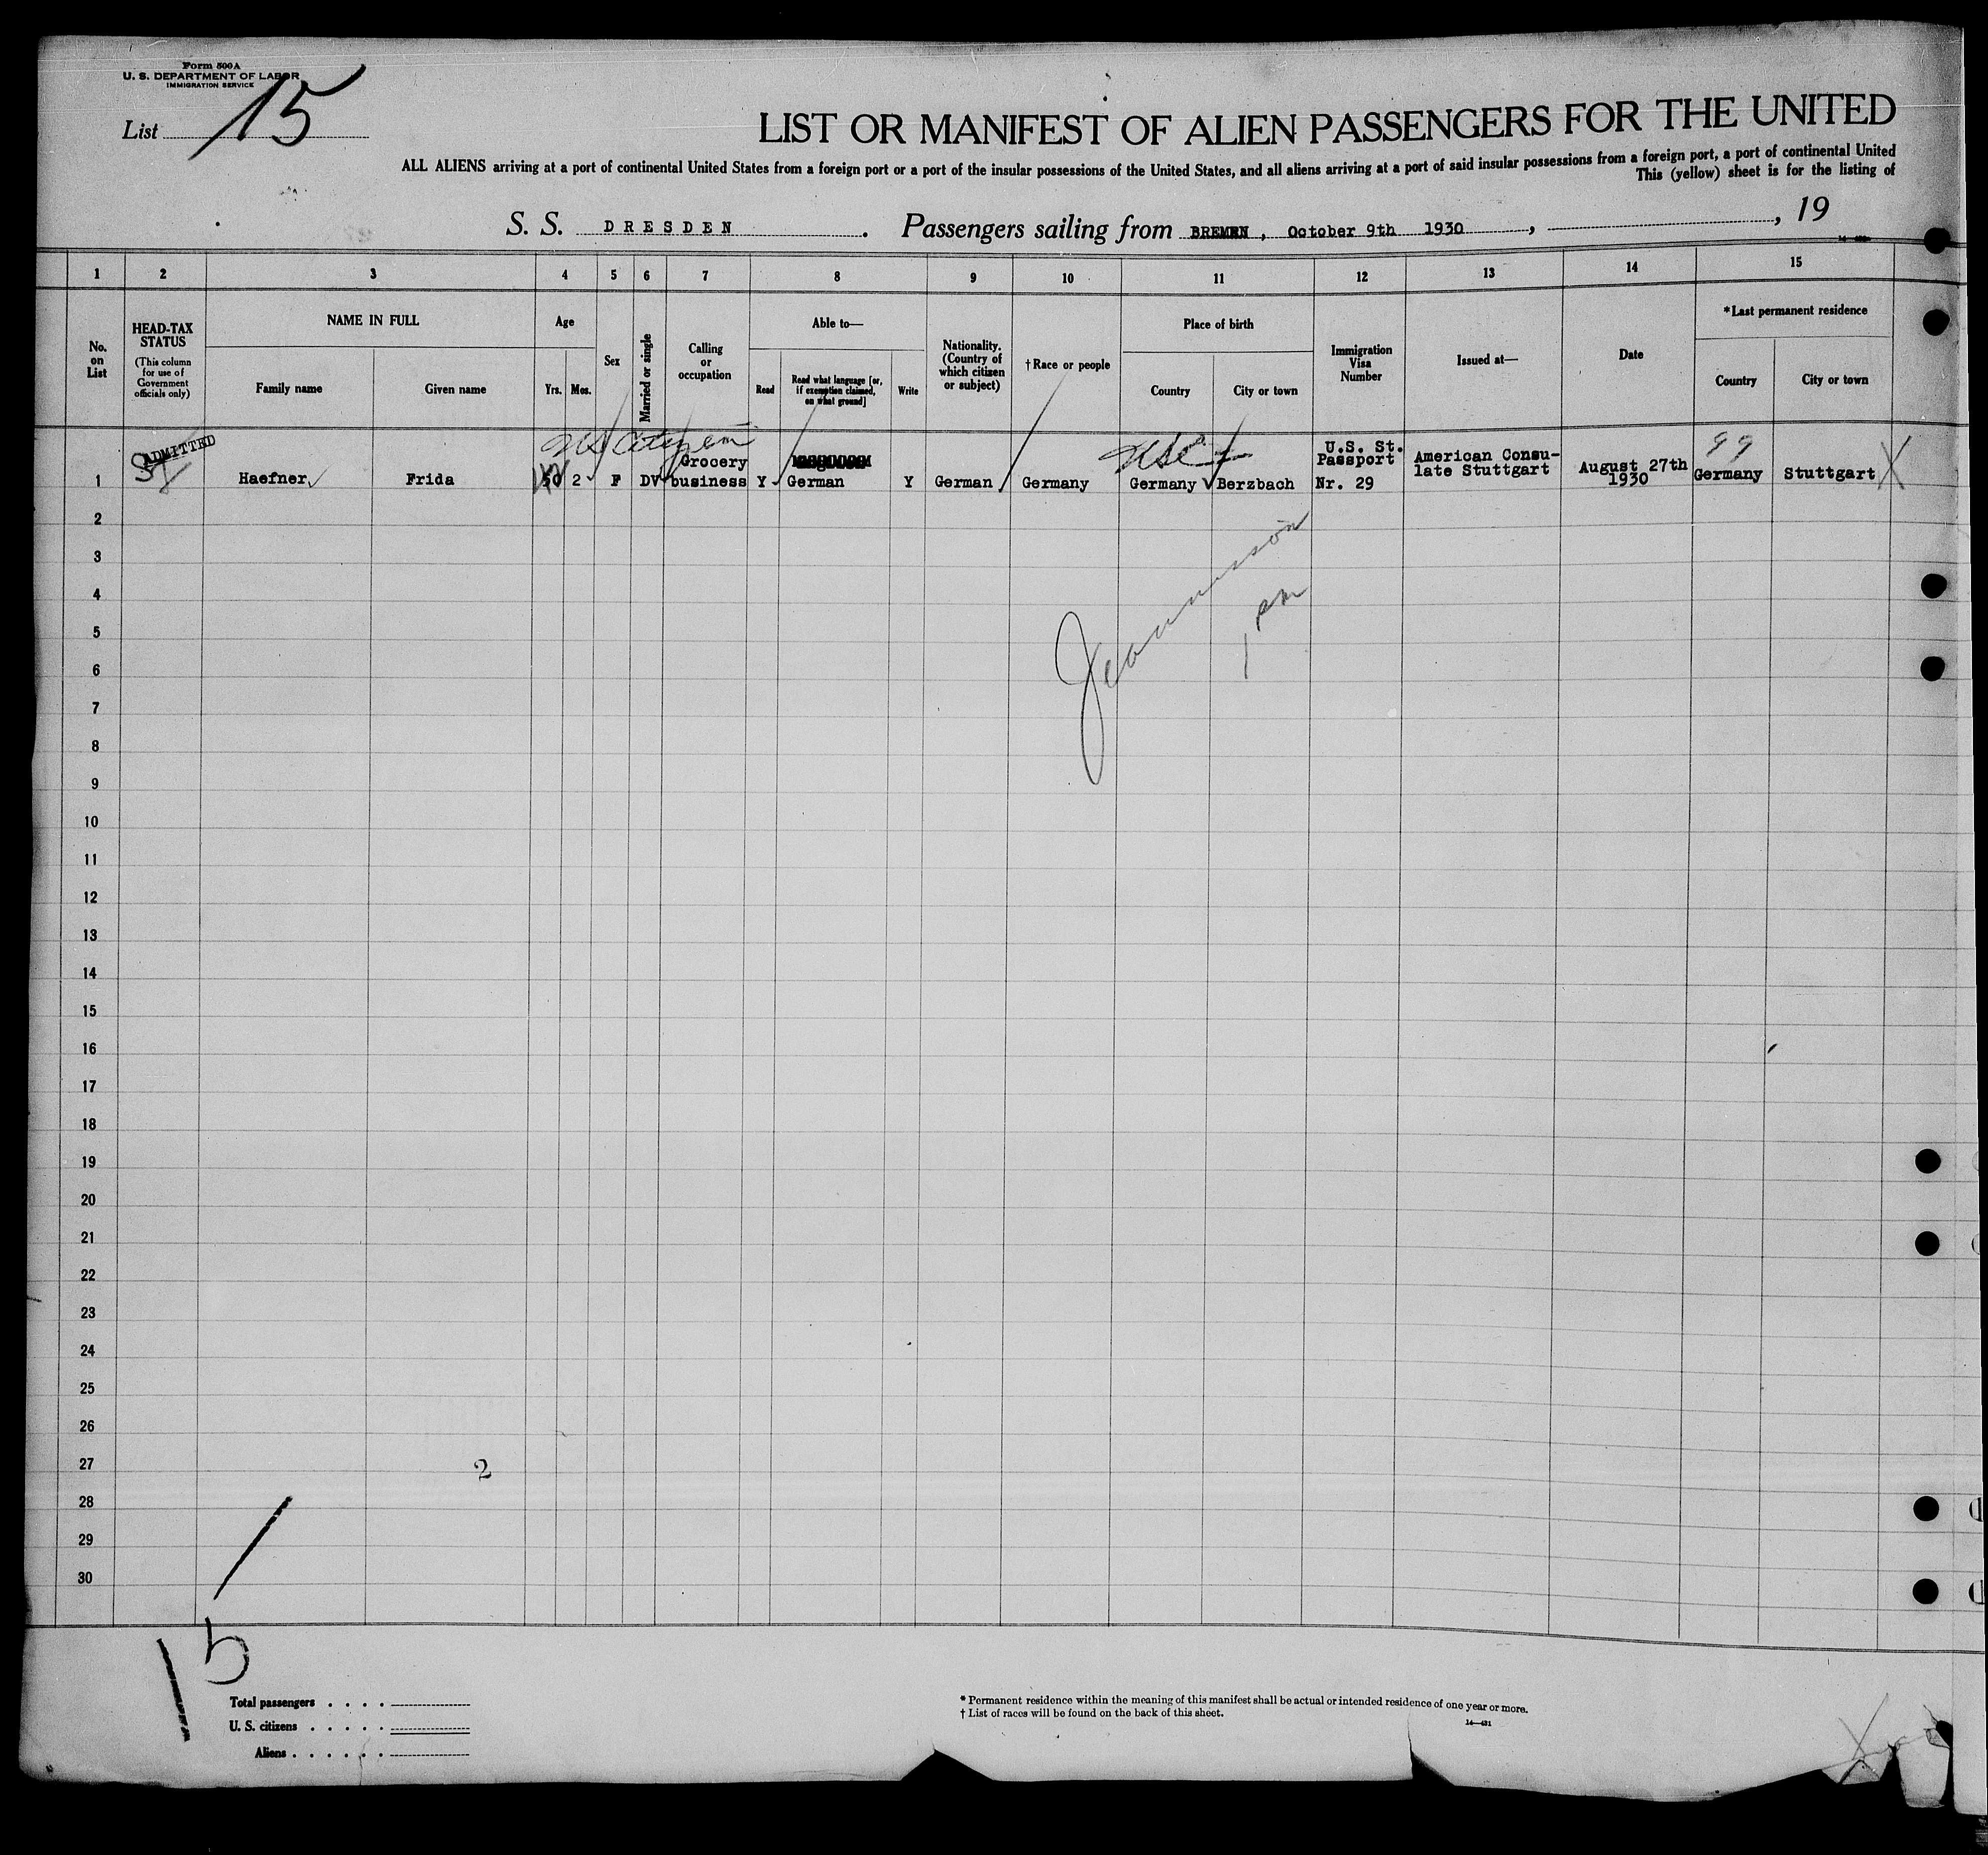 Form 500A
U. S. DEPARTMENT OF LABOR
IMMIGRATION SERVICE
List 15
LIST OR MANIFEST OF ALIEN PASSENGERS FOR THE UNITED
ALL ALIENS arriving at a port of continental United States from a foreign port or a port of the insular possessions of the United States, and all aliens arriving at a port of said insular possessions from a foreign port, a port of continental United
This (yellow) sheet is for the listing of
S. S. DRESDEN . Passengers sailing from BREMEN, October 9th 1930 , , 19
1 2 3 4 5 6 7 8 9 10 11 12 13 14 15
No. on List
HEAD-TAX STATUS
(This column for use of Government officials only)
NAME IN FULL
Family name
Given name
Age
Yrs. Mos.
Sex
Married or single
Calling or occupation
Able to—
Read
Read what language [or, if exemption claimed, on what ground]
Write
Nationality. (Country of which citizen or subject)
†Race or people
Place of birth
Country
City or town
Immigration Visa Number
Issued at—
Date
*Last permanent residence
Country
City or town
ADMITTED
US Citizen
USC
99
1 Haefner Frida 50 2 F DV Grocery business Y German Y German Germany Germany Berzbach U.S. St. Passport Nr. 29 American Consulate Stuttgart August 27th 1930 Germany Stuttgart X
2
3
4
5
6
7
8
9
10
11
12
13
14
15
16
17
18
19
20
21
22
23
24
25
26
27
28
29
30
1 pm
2
15
Total passengers . . . .
U. S. citizens . . . . .
Aliens . . . . . .
* Permanent residence within the meaning of this manifest shall be actual or intended residence of one year or more.
† List of races will be found on the back of this sheet.
14—431